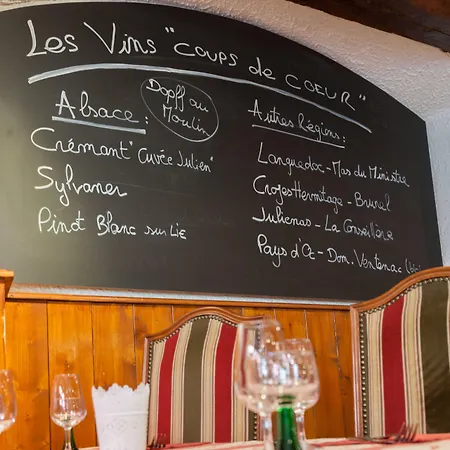 Les Vins "COUPS de COEUR"
Alsace :
Dopff au
Moulin
Crémant "Cuvée Julien"
Sylvaner
Pinot Blanc sur Lie
Autres Régions :
Languedoc - Mas du Ministre
Crozes Hermitage - Brunel
Julienas - La Conseillère
Pays d'Oc - Dom. Ventenac